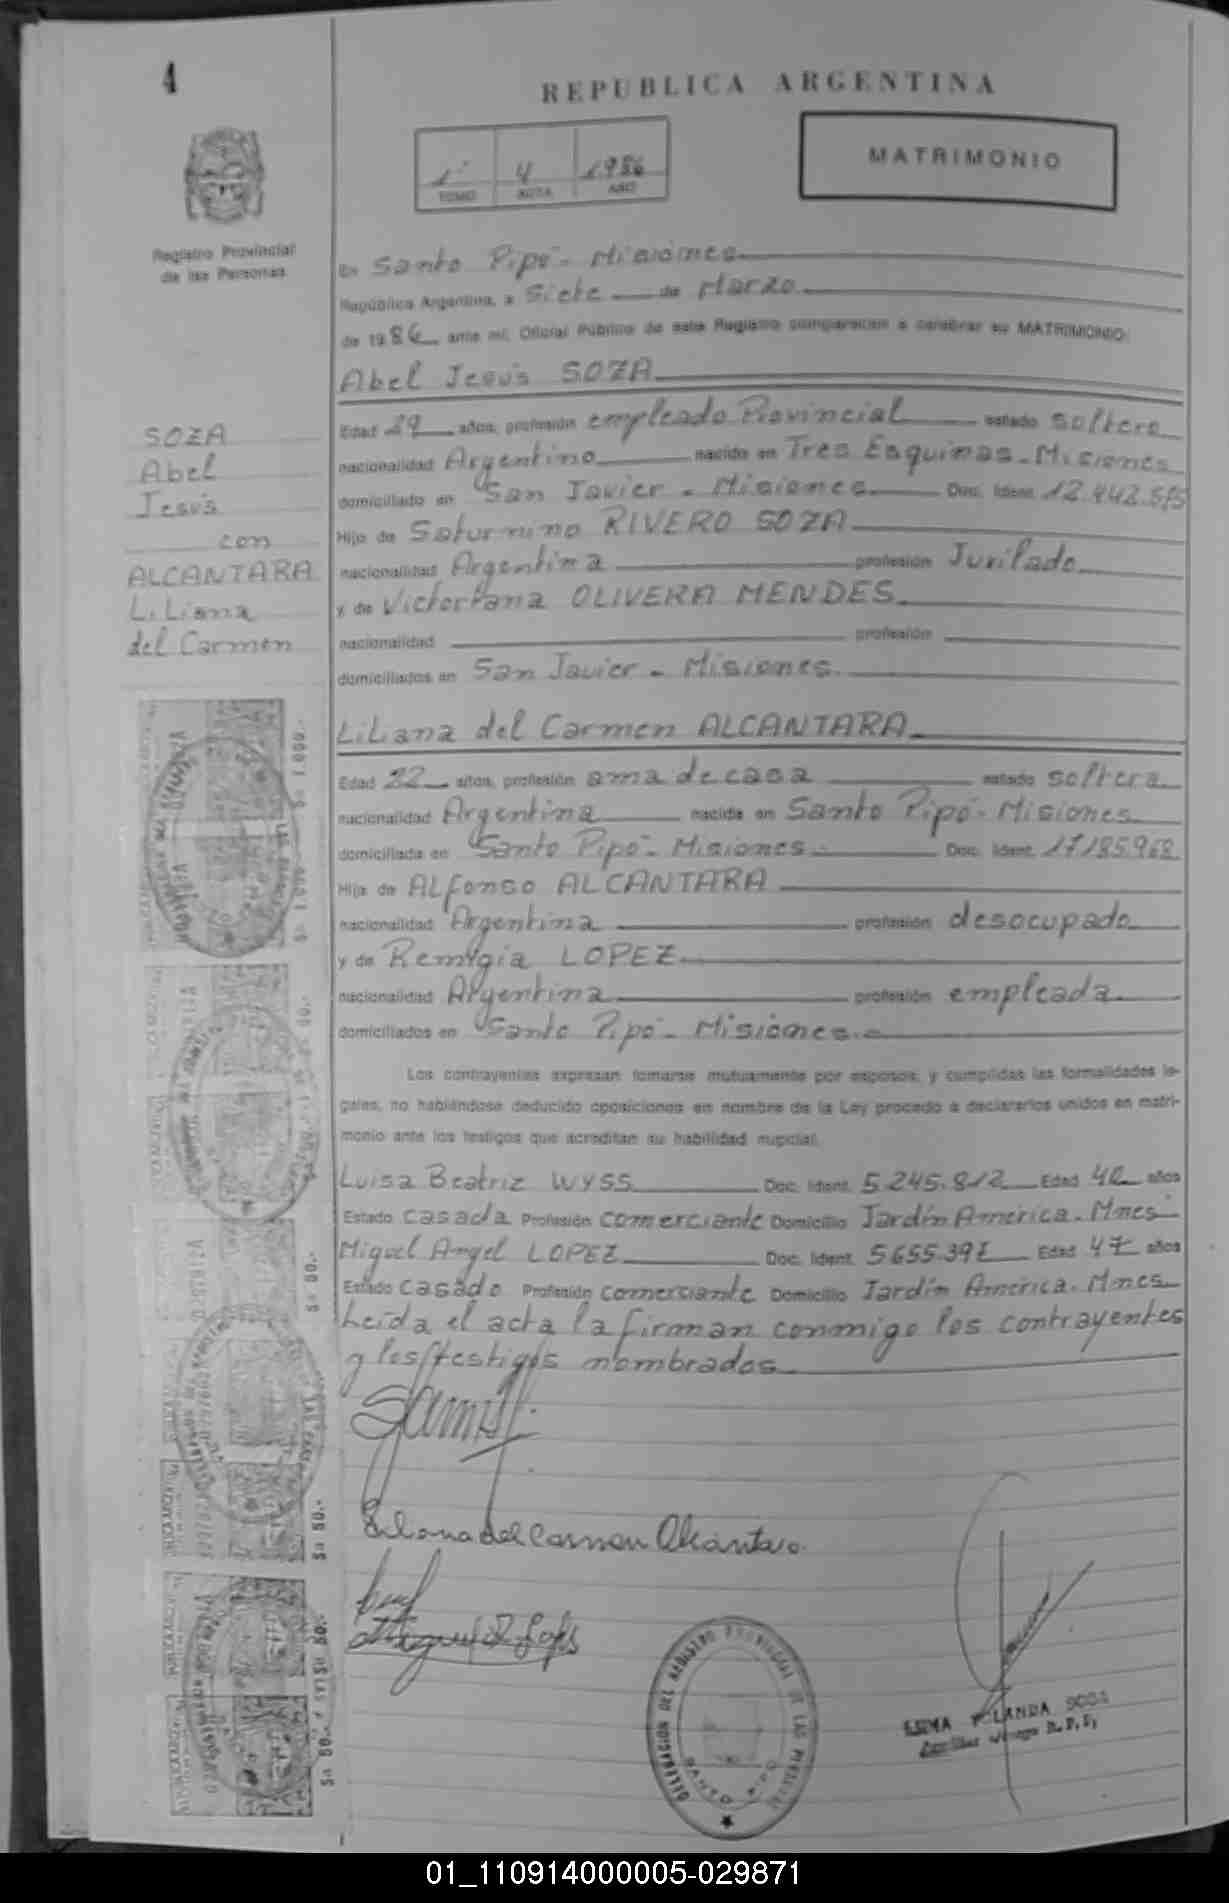 4
REPUBLICA ARGENTINA
1º 4 1986
TOMO ACTA AÑO
MATRIMONIO
Registro Provincial
de las Personas
En Santo Pipó - Misiones
República Argentina, a Siete de Marzo
de 1986 ante mí, Oficial Público de este Registro comparecen a celebrar su MATRIMONIO:
Abel Jesús SOZA
Edad 29 años, profesión empleado Provincial estado soltero
nacionalidad Argentino nacido en Tres Esquinas - Misiones
domiciliado en San Javier - Misiones Doc. Ident.
Hijo de Saturnino RIVERO SOZA
nacionalidad Argentina profesión Juvilado
y de Victoriana OLIVERA MENDES
nacionalidad profesión
domiciliados en San Javier - Misiones.
SOZA
Abel
Jesús
con
ALCANTARA
Liliana
del Carmen
Liliana del Carmen ALCANTARA
Edad 22 años, profesión ama de casa estado soltera
nacionalidad Argentina nacida en Santo Pipó - Misiones
domiciliada en Santo Pipó - Misiones - Doc. Ident. 17.185.968
Hija de Alfonso ALCANTARA
nacionalidad Argentina profesión desocupado
y de Remigia LOPEZ
nacionalidad Argentina profesión empleada
domiciliados en Santo Pipó - Misiones.
Los contrayentes expresan tomarse mutuamente por esposos, y cumplidas las formalidades le-
gales, no habiéndose deducido oposiciones en nombre de la Ley procedo a declararlos unidos en matri-
monio ante los testigos que acreditan su habilidad nupcial.
Luisa Beatriz WYSS Doc. Ident. 5.245.812 Edad años
Estado casada Profesión comerciante Domicilio Jardín América - Mnes
Miguel Angel LOPEZ Doc. Ident. Edad 47 años
Estado casado Profesión comerciante Domicilio Jardín América - Mnes
Leída el acta la firman conmigo los contrayentes
y los testigos nombrados
Liliana del Carmen Alcántara
DELEGACION DEL REGISTRO PROVINCIAL DE LAS PERSONAS
SANTO PIPO
01_110914000005-029871